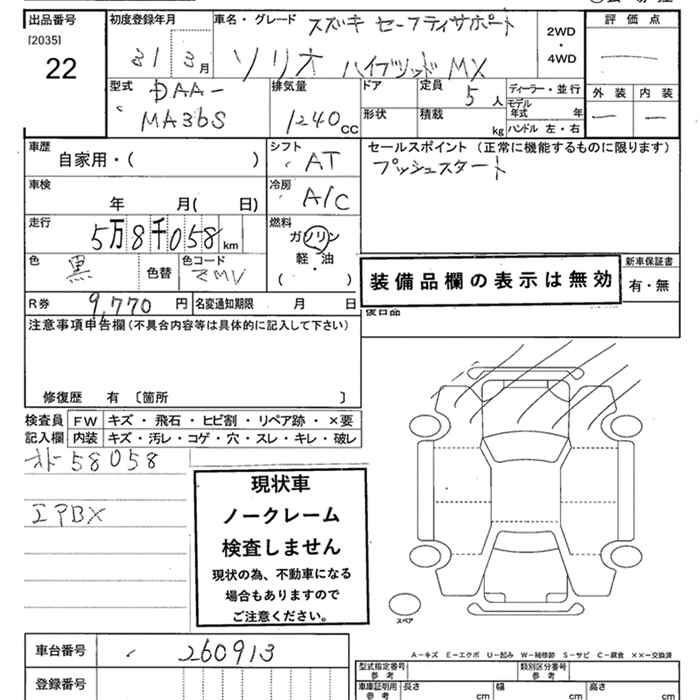 出品番号 初度登録年月 車名・グレード スズキ セーフティサポート 2WD・4WD 評価点
[2035]
22 31 3月 ソリオ ハイブリッド MX
外装 内装
型式 DAA- 排気量 ドア 定員 5人 ディーラー・並行
MA36S 1240cc 形状 積載 kg モデル年式 年
ハンドル 左・右
車歴 シフト セールスポイント (正常に機能するものに限ります)
自家用・( ) AT プッシュスタート
車検 冷房
年 月( 日) A/C
走行 燃料
5万8千058km ガソリン
軽・油
( )
色 黒 色替 色コード ZMV
装備品欄の表示は無効
新車保証書
有・無
R券 9,770円 名変通知期限 月 日
後日品
注意事項申告欄(不具合内容等は具体的に記入して下さい)
修復歴 有 〔箇所 〕
検査員 FW キズ・飛石・ヒビ割・リペア跡・×要
記入欄 内装 キズ・汚レ・コゲ・穴・スレ・キレ・破レ
オド58058
エアBX
現状車
ノークレーム
検査しません
現状の為、不動車になる
場合もありますので
ご注意ください。
スペア
車台番号 260913
A-キズ E-エクボ U-凹み W-補修跡 S-サビ C-腐食 ××-交換済
登録番号
型式指定番号 参考 類別区分番号 参考
車庫証明用 参考 長さ cm 幅 cm 高さ cm